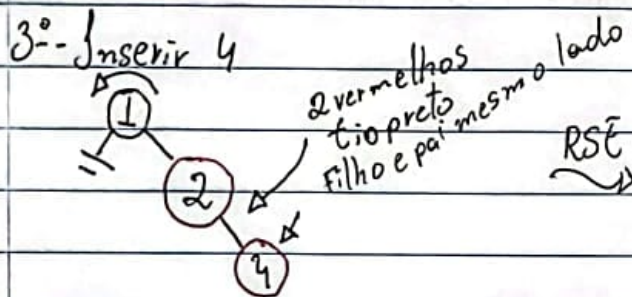 3º- Inserir 4
1
2
4
2 vermelhos
tio preto
Filho e pai mesmo lado
RSE